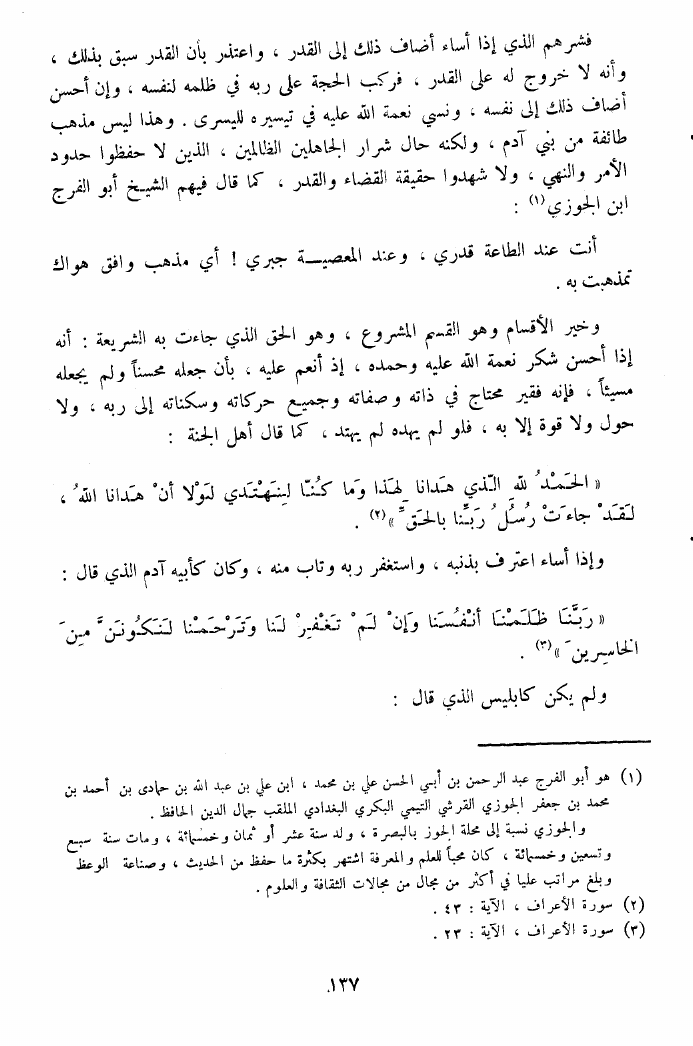 فشرهم الذي إذا أساء أضاف ذلك إلى القدر ، واعتذر بأن القدر سبق بذلك ،
وأنه لا خروج له على القدر ، فركب الحجة على ربه في ظلمه لنفسه ، وإن أحسن
أضاف ذلك إلى نفسه ، ونسي نعمة الله عليه في تيسيره لليسرى . وهذا ليس مذهب
طائفة من بني آدم ، ولكنه حال شرار الجاهلين الظالمين ، الذين لا حفظوا حدود
الأمر والنهي ، ولا شهدوا حقيقة القضاء والقدر ، كما قال فيهم الشيخ أبو الفرج
ابن الجوزي(١) :
أنت عند الطاعة قدري ، وعند المعصية جبري ! أي مذهب وافق هواك
تمذهبت به .
وخير الأقسام وهو القسم المشروع ، وهو الحق الذي جاءت به الشريعة : أنه
إذا أحسن شكر نعمة الله عليه وحمده ، إذ أنعم عليه ، بأن جعله محسناً ولم يجعله
مسيئاً ، فإنه فقير محتاج في ذاته وصفاته وجميع حركاته وسكناته إلى ربه ، ولا
حول ولا قوة إلا به ، فلو لم يهده لم يهتد ، كما قال أهل الجنة :
« الحَمْدُ للهِ الَّذي هَدانا لِهَذا وَما كُنّا لِنَهْتَدي لَوْلا أنْ هَدانا اللهُ ،
لَقَدْ جاءَتْ رُسُلُ رَبِّنا بالحَقِّ »(٢) .
وإذا أساء اعترف بذنبه ، واستغفر ربه وتاب منه ، وكان كأبيه آدم الذي قال :
« رَبَّنَا ظَلَمْنَا أنْفُسَنا وَإنْ لَمْ تَغْفِرْ لَنا وَتَرْحَمْنا لَنَكُونَنَّ مِنَ
الخاسِرينَ »(٣) .
ولم يكن كابليس الذي قال :
(١) هو أبو الفرج عبد الرحمن بن أبي الحسن علي بن محمد ، ابن علي بن عبد الله بن حمادى بن أحمد بن
محمد بن جعفر الجوزي القرشي التيمي البكري البغدادي الملقب جمال الدين الحافظ .
والجوزي نسبة إلى محلة الجوز بالبصرة ، ولد سنة عشر أو ثمان وخمسمائة ، ومات سنة سبع
وتسعين وخمسمائة ، كان محباً للعلم والمعرفة اشتهر بكثرة ما حفظ من الحديث ، وصناعة الوعظ
وبلغ مراتب عليا في أكثر من مجال من مجالات الثقافة والعلوم .
(٢) سورة الأعراف ، الآية : ٤٣ .
(٣) سورة الأعراف ، الآية : ٢٣ .
١٣٧.